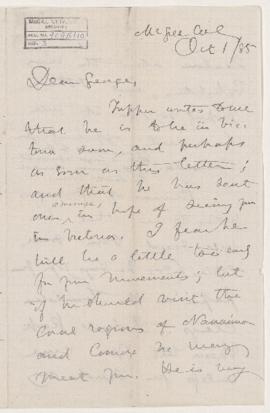 McGill Col
Oct 1/85
Dear George,
Tupper writes to me
that he is to be in Vic-
toria soon, and perhaps
as soon as this letter;
and that he has sent
in hope of seeing you
in Victoria. I fear he
will be a little too early
for your movements; but
if he should visit the
coal regions of Nanaimo
and Comox he may
meet you. He is very